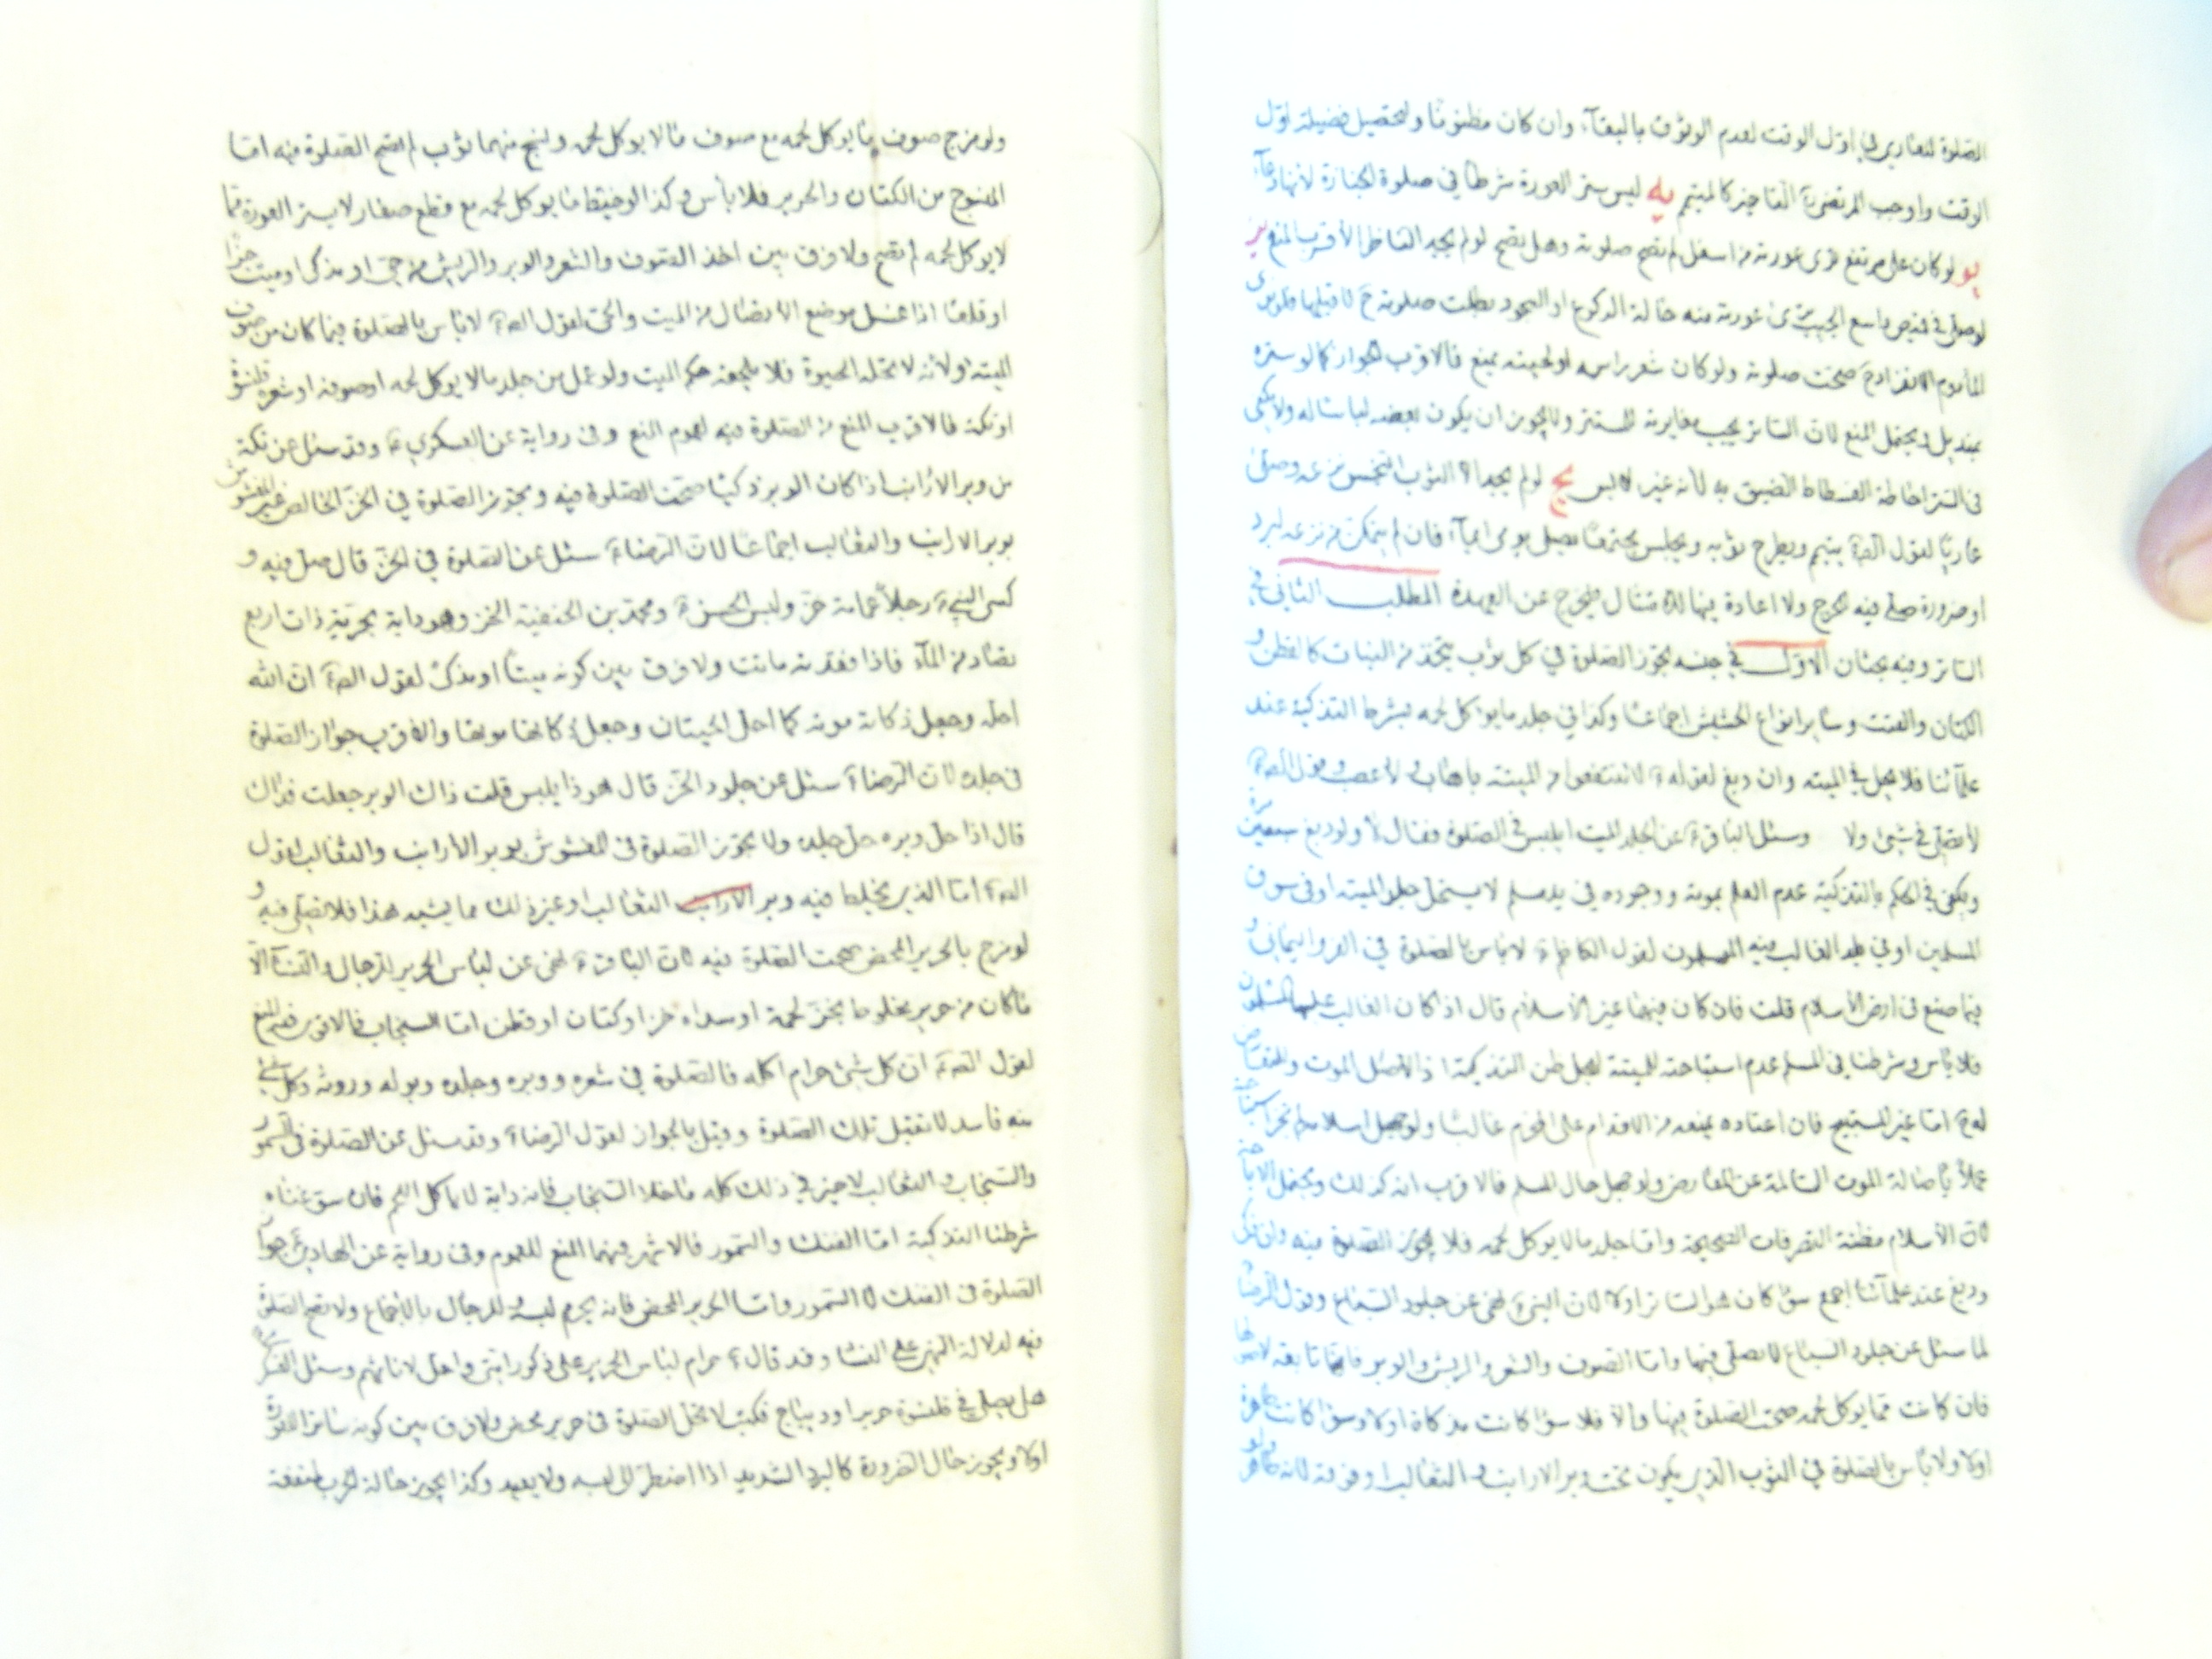 الصلوة للعاري في اول الوقت لعدم الوثوق بالبقاء وان كان مظنونا ولتحصيل فضيلة اول
الوقت واوجب المرتضى التاخير كالمتيمم يه ليس ستر العورة شرطا في صلوة الجنازة لأنها دعاء
يو لو كان على مرتفع ترى عورته من اسفل لم تصح صلوته وهل تصح لو لم يجد الناظر الأقرب المنع يز
لو صلى في قميص واسع الجيب ترى عورته منه حالة الركوع او السجود بطلت صلوته ح لا قبلها فلو نوى
المأموم الانفراد ح صحت صلوته ولو كان شعر راسه او لحيته يمنع فالاقرب الجواز كما لو ستره
بمنديل ويحتمل المنع لان الساتر يجب مغايرته للمستتر ولا يجوز ان يكون بعضه لباسا له ولا يكفي
في الستر احاطة الفسطاط الضيق به لأنه غير لابس يح لو لم يجد الا الثوب النجس نزعه وصلى
عاريا لقول الص يتيمم ويطرح ثوبه ويجلس مجتمعا فيصلي يومي ايماء فان لم يتمكن من نزعه لبرد
او ضرورة صلى فيه للحرج ولا اعادة فيها للامتثال فيخرج عن العهدة المطلب الثاني في
الساتر وفيه بحثان الاول في جنسه تجوز الصلوة في كل ثوب يتخذ من النبات كالقطن و
الكتان والقنب وساير انواع الحشيش اجماعا وكذا في جلد ما يؤكل لحمه بشرط التذكية عند
علمائنا فلا يحل في الميتة وان دبغ لقوله لا تنتفعوا من الميتة باهاب ولا عصب وقول الص
لا تصلي في شيء ولا وسئل الباقر عن الجلد الميت ايلبس في الصلوة فقال لا ولو دبغ سبعين مرة
ويكفي في الحكم بالتذكية عدم العلم بموته ووجوده في يد مسلم لا يستحل جلد الميتة او في سوق
المسلمين او في بلد الغالب فيه المسلمون لقول الكاظم لا باس بالصلوة في الفرو اليماني و
فيما صنع في ارض الأسلام قلت فان كان فيها غير الأسلام قال اذا كان الغالب عليها المسلمون
فلا باس وشرطنا في المسلم عدم استباحته للميتة ليحصل ظن التذكية اذ الاصل الموت والمعارض
له ح اما غير المستبيح فان اعتقاده يمنعه من الاقدام على المحرم غالبا ولو جهل اسلامه لم يجز استباحته
عملا باصالة الموت السالمة عن المعارض ولو جهل حال المسلم فالاقرب انه كذلك ويحتمل الاباحة
لان الأسلام مظنة التصرفات الصحيحة واما جلد ما لا يؤكل لحمه فلا تجوز الصلوة فيه وان ذكى
ودبغ عند علمائنا اجمع سواء كان هو الساتر او لا لان النبي نهى عن جلود السباع وقول الرضا
لما سئل عن جلود السباع لا تصلي فيها واما الصوف والشعر والريش والوبر فانها تابعة لاصولها
فان كانت مما يؤكل لحمه صحت الصلوة فيها والا فلا سواء كانت مذكاة او لا وسواء كانت طاهرة
او لا ولا باس بالصلوة في الثوب الذي يكون تحت وبر الارانب والثعالب او فوقه لانه طاهر
ولو مزج صوف ما يؤكل لحمه مع صوف ما لا يؤكل لحمه ونسج منهما ثوب لم تصح الصلوة فيه اما
المنسوج من الكتان والحرير فلا باس وكذا لو خيط ما يؤكل لحمه مع قطع صغار لا يستر العورة مما
لا يؤكل لحمه لم تصح ولا فرق بين اخذ الصوف والشعر والوبر والريش من حي او مذكى او ميت جزا
او قلعا اذا غسل موضع الاتصال من الميت والحي لقول الص لا باس بالصلوة فيما كان من صوف
الميتة ولانه لا تحله الحيوة فلا يلحقه حكم الميت ولو عمل من جلد ما لا يؤكل لحمه او صوفه او شعره قلنسوة
او تكة فالاقرب المنع من الصلوة فيه لعموم المنع وفي رواية عن العسكري وقد سئل عن تكة
من وبر الارانب اذا كان الوبر ذكيا صحت الصلوة فيه وتجوز الصلوة في الخز الخالص غير المغشوش
بوبر الارانب والثعالب اجماعا لان الرضا سئل عن الصلوة في الخز قال صل فيه و
كسى النبي رجلا عمامة خز ولبس الحسن ومحمد بن الحنفية الخز وهو دابة بحرية ذات اربع
تصاد من الماء فاذا فقدته ماتت ولا فرق بين كونه ميتا او مذكى لقول الص ان الله
احله وجعل ذكاته موته كما احل الحيتان وجعل ذكاتها موتها والاقرب جواز الصلوة
في جلده لان الرضا سئل عن جلود الخز قال هو ذا يلبس قلت ذاك الوبر جعلت فداك
قال اذا حل وبره حل جلده ولا تجوز الصلوة في المغشوش بوبر الارانب والثعالب لقول
الص اما الذي يخلط فيه وبر الارانب الثعالب او غير ذلك مما يشبه هذا فلا تصلي فيه و
لو مزج بالحرير المحض صحت الصلوة فيه لان الباقر نهى عن لباس الحرير للرجال والنساء الا
ما كان من حرير مخلوط بخز لحمة او سداه خز او كتان او قطن اما السنجاب فالاقوى فيه المنع
لقول الص ان كل شيء حرام اكله فالصلوة في شعره ووبره وجلده وبوله وروثه وكل شيء
منه فاسد لا تقبل تلك الصلوة وقيل بالجواز لقول الرضا وقد سئل عن الصلوة في السمور
والسنجاب والثعالب لا خير في ذلك كله ما خلا السنجاب فانه دابة لا تاكل اللحم فان سوغناه
شرطنا التذكية اما الفنك والسمور فالاشهر فيهما المنع للعموم وفي رواية عن الهادي جواز
الصلوة في الفنك لا السمور واما الحرير المحض فانه يحرم لبسه للرجال بالاجماع ولا تصح الصلوة
فيه لدلالة النهي على الفساد وقد قال حرام لباس الحرير على ذكور امتي واحل لاناثهم وسئل العسكري
هل يصلي في قلنسوة حرير او ديباج فكتب لا تحل الصلوة في حرير محض ولا فرق بين كونه ساترا للعورة
او لا ويجوز حال الضرورة كالبرد الشديد اذا اضطر الى لبسه ولا يعيد وكذا يجوز حالة الحرب لمنفعة